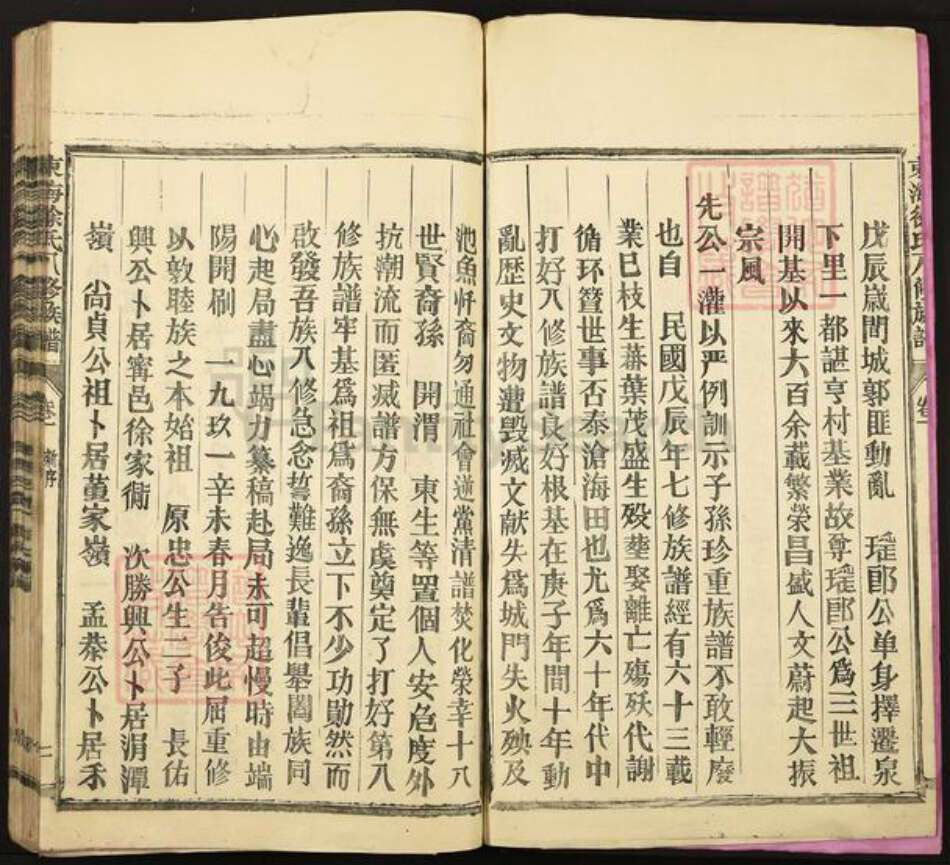 戊辰嵗間城郭匪動亂　瑤郎公单身擇遷泉
下里一都諶亨村基業故尊瑤郎公爲三世祖
開基以來六百余載繁荣昌盛人文蔚起大振
宗風
先公一灌以严例訓示子孫珍重族譜不敢輕廢
也自　民國戊辰年七修族譜經有六十三載
業已枝生蕃葉茂盛生殁塟娶離亡殤殀代謝
循环簦世事否泰滄海田也尤爲六十年代中
打好八修族譜良好根基在庚子年間十年動
亂歷史文物遭毁滅文献失爲城門失火殃及
池魚忏裔勿通社會逆黨清譜焚化榮幸十八
世賢裔孫　開渭　東生等置個人安危度外
抗潮流而匿滅譜方保無虞奠定了打好第八
修族譜牢基爲祖爲裔孫立下不少功勛然而
啟發吾族八修急念誓難逸長輩倡舉闔族同
心起局盡心竭力纂稿赴局未可超慢時由端
陽開刷　一九玖一辛未春月告俊此屈重修
以敦睦族之本始祖　原忠公生二子　長佑
興公卜居寗邑徐家衕　次勝興公卜居涓潭
嶺　尚貞公祖卜居董家嶺　孟恭公卜居禾
東海徐氏八修族譜
卷一
新序
東海徐氏八修族譜
卷一